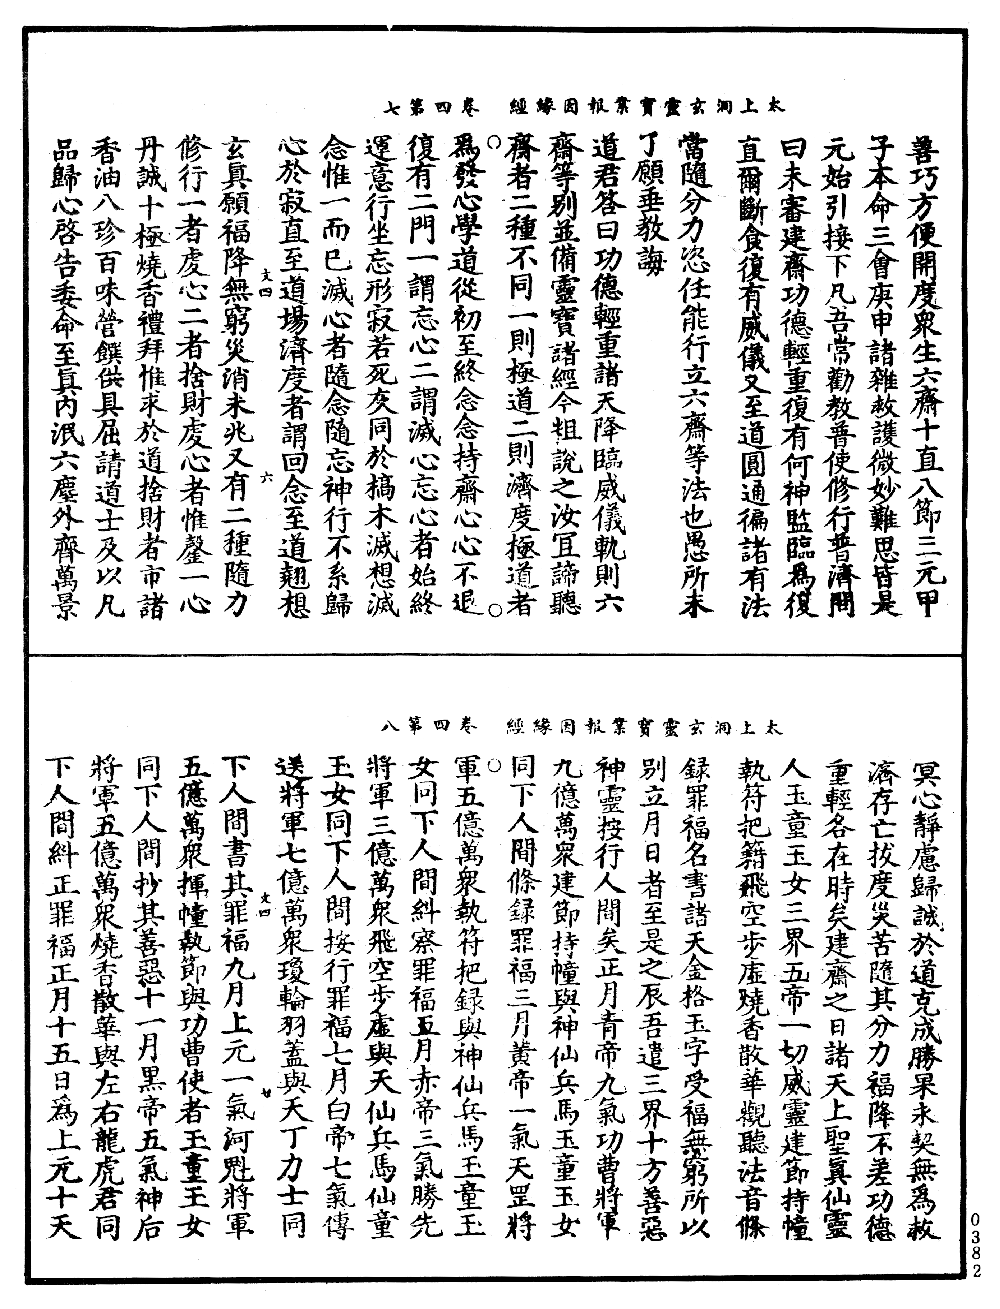 太上洞玄靈寶業報因緣經　卷四第七
善巧方便開度衆生六齋十直八節三元甲
子本命三會庚申諸雜救護微妙難思皆是
元始引接下凡吾常勸教普使修行普濟問
曰未審建齋功德輕重復有何神監臨爲復
直爾斷食復有威儀又至道圓通徧諸有法
當隨分力恣任能行立六齋等法也愚所未
了願垂教誨
道君答曰功德輕重諸天降臨威儀軌則六
齋等別並備靈寶諸經今粗說之汝冝諦聽
齋者二種不同一則極道二則濟度極道者
爲發心學道從初至終念念持齋心心不退
復有二門一謂忘心二謂滅心忘心者始終
運意行坐忘形寂若死灰同於槁木滅想滅
念惟一而已滅心者隨念隨忘神行不系歸
心於寂直至道場濟度者謂回念至道翹想
玄眞願福降無窮災消未兆又有二種隨力
修行一者虔心二者捨財虔心者惟罄一心
丹誠十極燒香禮拜惟求於道捨財者市諸
香油八珍百味營饌供具屈請道士及以凡
品歸心啓告委命至眞內泯六塵外齊萬景
文四
六
太上洞玄靈寶業報因緣經　卷四第八
冥心靜慮歸誠於道克成勝果永契無爲救
濟存亡拔度災苦隨其分力福降不差功德
重輕各在時矣建齋之日諸天上聖眞仙靈
人玉童玉女三界五帝一切威靈建節持幢
執符把籍飛空步虛燒香散華觀聽法音條
録罪福名書諸天金格玉字受福無窮所以
別立月日者至是之辰吾遣三界十方善惡
神靈按行人間矣正月青帝九氣功曹將軍
九億萬衆建節持幢與神仙兵馬玉童玉女
同下人間條録罪福三月黄帝一氣天罡將
軍五億萬衆執符把録與神仙兵馬玉童玉
女同下人間糾察罪福五月赤帝三氣勝先
將軍三億萬衆飛空步虛與天仙兵馬仙童
玉女同下人間按行罪福七月白帝七氣傳
送將軍七億萬衆瓊輪羽蓋與天丁力士同
下人間書其罪福九月上元一氣河魁將軍
五億萬衆揮幢執節與功曹使者玉童玉女
同下人間抄其善惡十一月黑帝五氣神后
將軍五億萬衆燒香散華與左右龍虎君同
下人間糾正罪福正月十五日爲上元十天
文四
七
0382